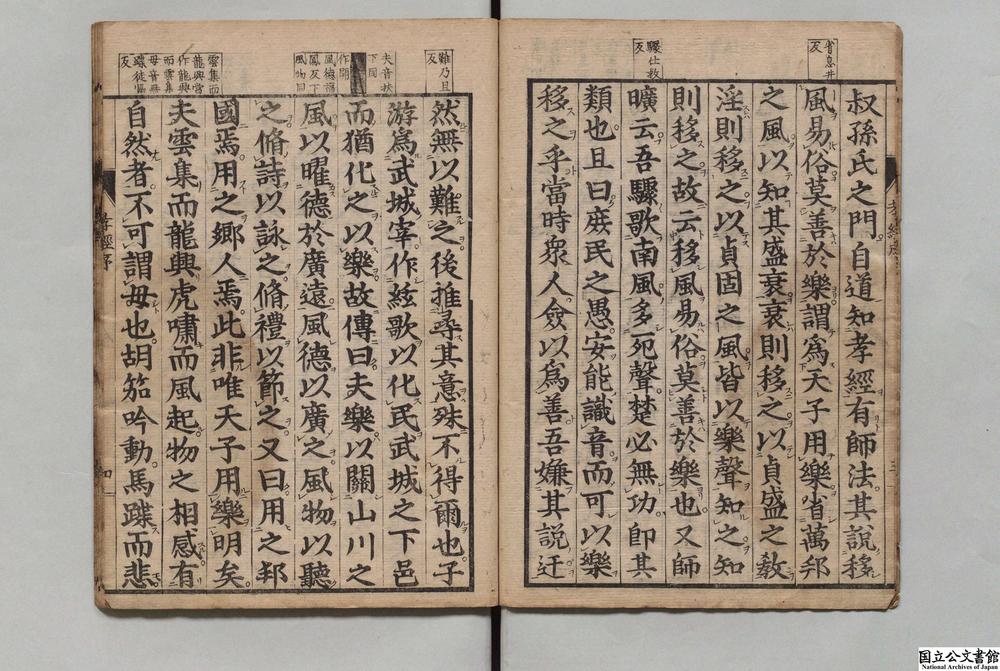 省息井
反
驟仕救
反
叔孫氏之門自道知孝經有師法其說移
風易俗莫善於樂謂爲天子用樂省萬邦
之風以知其盛衰衰則移之以貞盛之敎
淫則移之以貞固之風皆以樂聲知之知
則移之故云移風易俗莫善於樂也又師
曠云吾驟歌南風多死聲楚必無功卽其
類也且曰庻民之愚安能識音而可以樂
移之乎當時衆人僉以爲善吾嫌其說迂
三
難乃旦
反
夫音扶
下同
作開
風德福
鳳反下
風物同
雲集而
龍興當
作龍興
而雲集
毋音無
然無以難之後推尋其意殊不得爾也子
游爲武城宰作絃歌以化民武城之下邑
而猶化之以樂故傳曰夫樂以關山川之
風以曜德於廣遠風德以廣之風物以聽
之脩詩以詠之脩禮以節之又曰用之邦
國焉用之鄉人焉此非唯天子用樂明矣
夫雲集而龍興虎嘯而風起物之相感有
自然者不可謂毋也胡笳吟動馬蹀而悲
孝經序
四
国立公文書館
National Archives of Japan